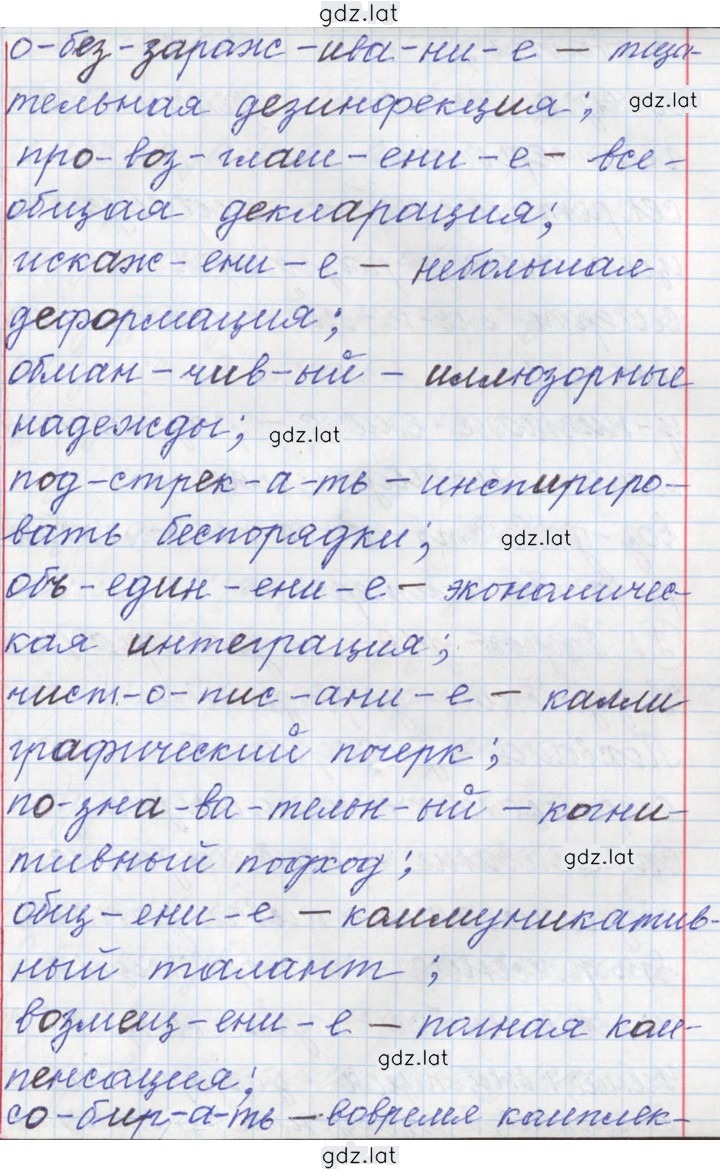 gdz.lat
о-без-зараж-ива-ни-е – тща-
тельная дезинфекция; gdz.lat
про-воз-глаш-ени-е – все-
общая декларация;
искаж-ени-е – небольшая
деформация;
обман-чив-ый – иллюзорные
надежды; gdz.lat
под-стрек-а-ть – инспириро-
вать беспорядки; gdz.lat
объ-един-ени-е – экономичес-
кая интеграция;
чист-о-пис-ани-е – калли
графический почерк;
по-зна-ва-тельн-ый – когни-
тивный подход; gdz.lat
общ-ени-е – коммуникатив-
ный талант;
возмещ-ени-е – полная ком-
gdz.lat
пенсация;
со-бир-а-ть – вовремя комплек-
gdz.lat